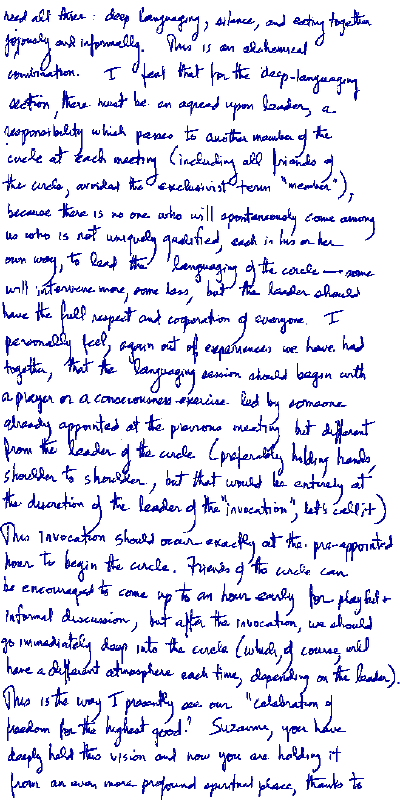 need all three: deep languaging, silence, and eating together
joyously and informally. This is an alchemical
combination. I feel that for the deep-languaging
section, there must be an agreed upon leader, a
responsibility which passes to another member of the
circle at each meeting (including all friends of
the circle, avoided the exclusivist term "member"),
because there is no one who will spontaneously come among
us who is not uniquely qualified, each in his or her
own way, to lead the languaging of the circle — some
will intervene more, some less, but the leader should
have the full respect and cooperation of everyone. I
personally feel, again out of experiences we have had
together, that the languaging session should begin with
a prayer or a consciousness-exercise led by someone
already appointed at the previous meeting but different
from the leader of the circle (preferably holding hands,
shoulder to shoulder, but that would be entirely at
the discretion of the leader of the "invocation", let's call it)
This Invocation should occur exactly at the pre-appointed
hour to begin the circle. Friends of the circle can
be encouraged to come up to an hour early for playful +
informal discussion, but after the invocation, we should
go immediately deep into the circle (which, of course, will
have a different atmosphere each time, depending on the leader).
This is the way I presently see our "celebration of
freedom for the highest good." Suzanne, you have
deeply held this vision and now you are holding it
from an even more profound spiritual place, thanks to